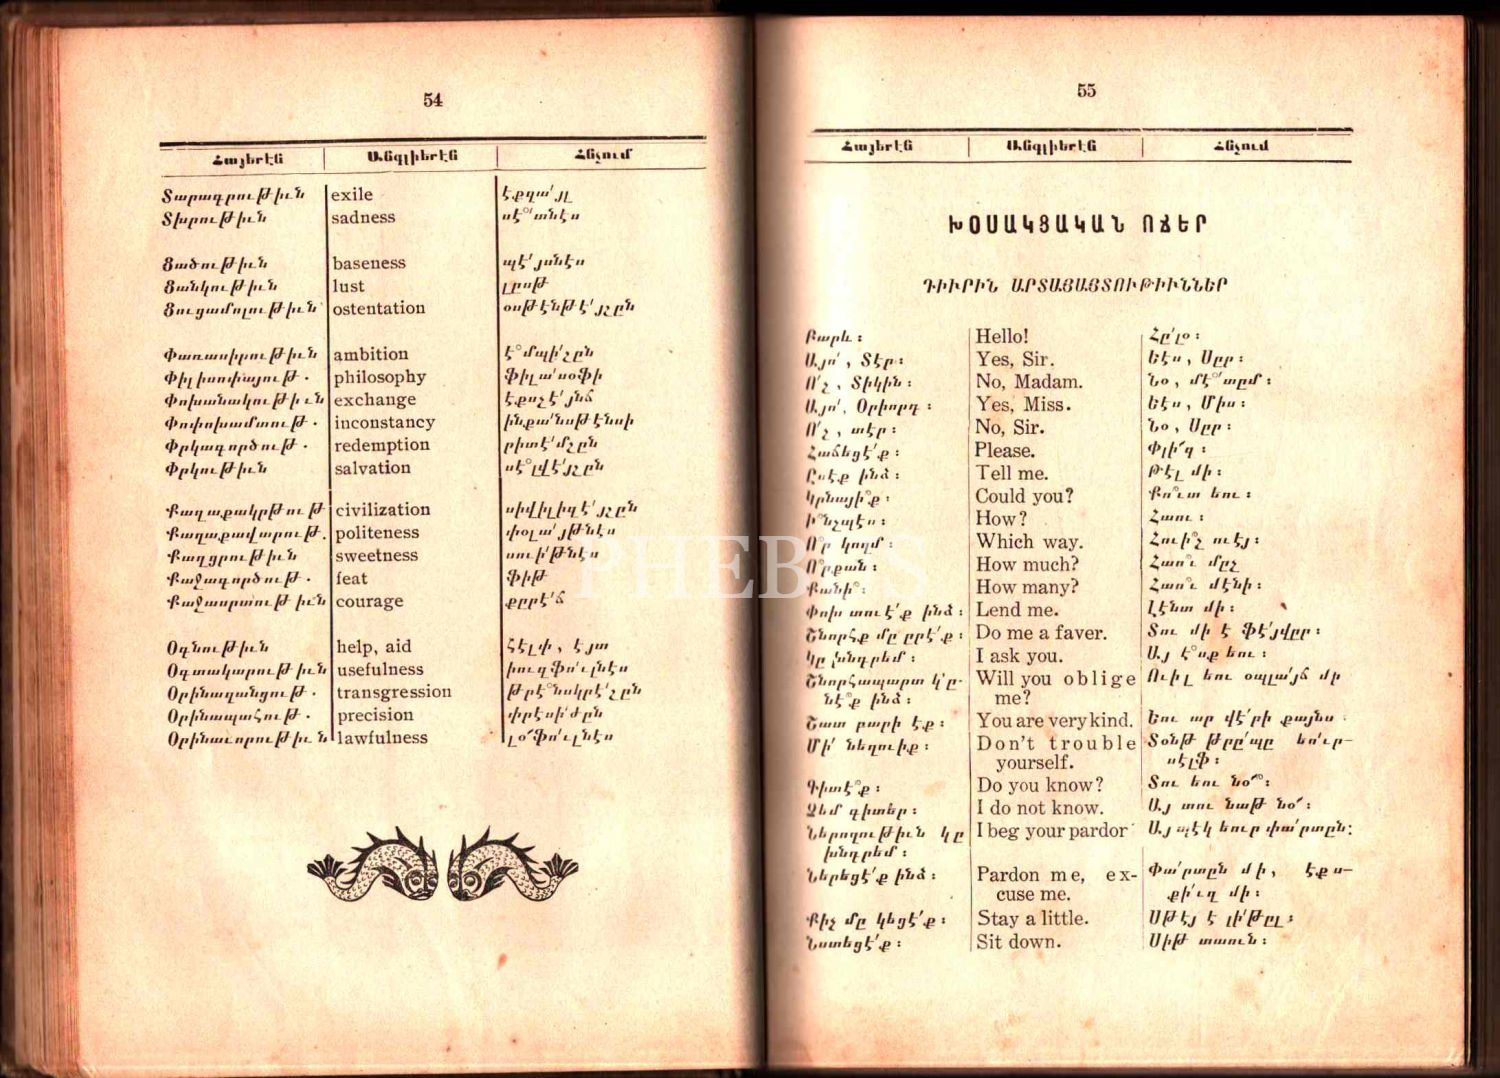 54
Հայերէն | Անգլիերէն | Հնչում
Տարագրութիւն exile էքզա՛յլ
Տխրութիւն sadness սէ՞տնէս
Ցածութիւն baseness պէ՛յսնէս
Ցանկութիւն lust լըսթ
Ցուցամոլութիւն ostentation օսթէնթէ՛յշըն
Փառասիրութիւն ambition է՞մպի՛շըն
Փիլիսոփայութ․ philosophy ֆիլա՛սօֆի
Փոխանակութիւն exchange էքսչէ՛յնճ
Փոփոխամտութ․ inconstancy ինքա՛նսթէնսի
Փրկագործութ․ redemption րիտէ՛մշըն
Փրկութիւն salvation սէ՞լվէ՛յշըն
Քաղաքակրթութ civilization սիվիլիզէ՛յշըն
Քաղաքավարութ․ politeness փօլա՛յթնէս
Քաղցրութիւն sweetness սուի՛թնէս
Քաջագործութ․ feat ֆիթ
Քաջասրտութիւն courage քըրէ՛ճ
Օգնութիւն help, aid հէլփ, էյտ
Օգտակարութիւն usefulness իուզֆո՛ւլնէս
Օրինազանցութ․ transgression թրէ՞նսկրէ՛շըն
Օրինապահութ․ precision փրէսի՛ժըն
Օրինաւորութիւն lawfulness լօ՜ֆո՛ւլնէս
55
Հայերէն | Անգլիերէն | Հնչում
ԽՕՍԱԿՑԱԿԱՆ ՈՃԵՐ
ԴԻՒՐԻՆ ԱՐՏԱՅԱՅՏՈՒԹԻՒՆՆԵՐ
Բարև։ Hello! Հը՛լօ։
Այո՛, Տէր։ Yes, Sir. Եէս, Սըր։
Ո՛չ, Տիկին։ No, Madam. Նօ, մէ՞տըմ։
Այո՛, Օրիորդ։ Yes, Miss. Եէս, Միս։
Ո՛չ, տէր։ No, Sir. Նօ, Սըր։
Հաճեցէ՛ք։ Please. Փլի՜զ։
Ըսէք ինձ։ Tell me. Թէլ մի։
Կրնայի՞ք։ Could you? Քո՞ւտ եու։
Ի՞նչպէս։ How? Հաու։
Ո՞ր կողմ։ Which way. Հուի՞չ ուէյ։
Ո՞րքան։ How much? Հաո՞ւ մըչ
Քանի՞։ How many? Հաո՞ւ մէնի։
Փոխ տուէ՛ք ինձ։ Lend me. Լէնտ մի։
Շնորհք մը ըրէ՛ք։ Do me a faver. Տու մի է ֆէ՛յվըր։
Կը խնդրեմ։ I ask you. Այ է՞սք եու։
Շնորհապարտ կ՚ը- Will you oblige Ուիլ եու օպլա՛յճ մի
նէ՞ք ինձ։ me?
Շատ բարի էք։ You are very kind. Եու ար վէ՛րի քայնտ
Մի՛ նեղուիք։ Don't trouble Տօնթ թրը՛պը եո՛ւր-
yourself. սէլֆ։
Գիտէ՞ք։ Do you know? Տու եու նօ՞։
Չեմ գիտեր։ I do not know. Այ տու նաթ նօ՜։
Ներողութիւն կը I beg your pardor Այ պէկ եուր փա՛րտըն։
խնդրեմ։
Ներեցէ՛ք ինձ։ Pardon me, ex- Փա՛րտըն մի, էքս-
cuse me. քի՛ւզ մի։
Քիչ մը կեցէ՛ք։ Stay a little. Սթէյ է լի՛թըլ։
Նստեցէ՛ք։ Sit down. Սիթ տաուն։